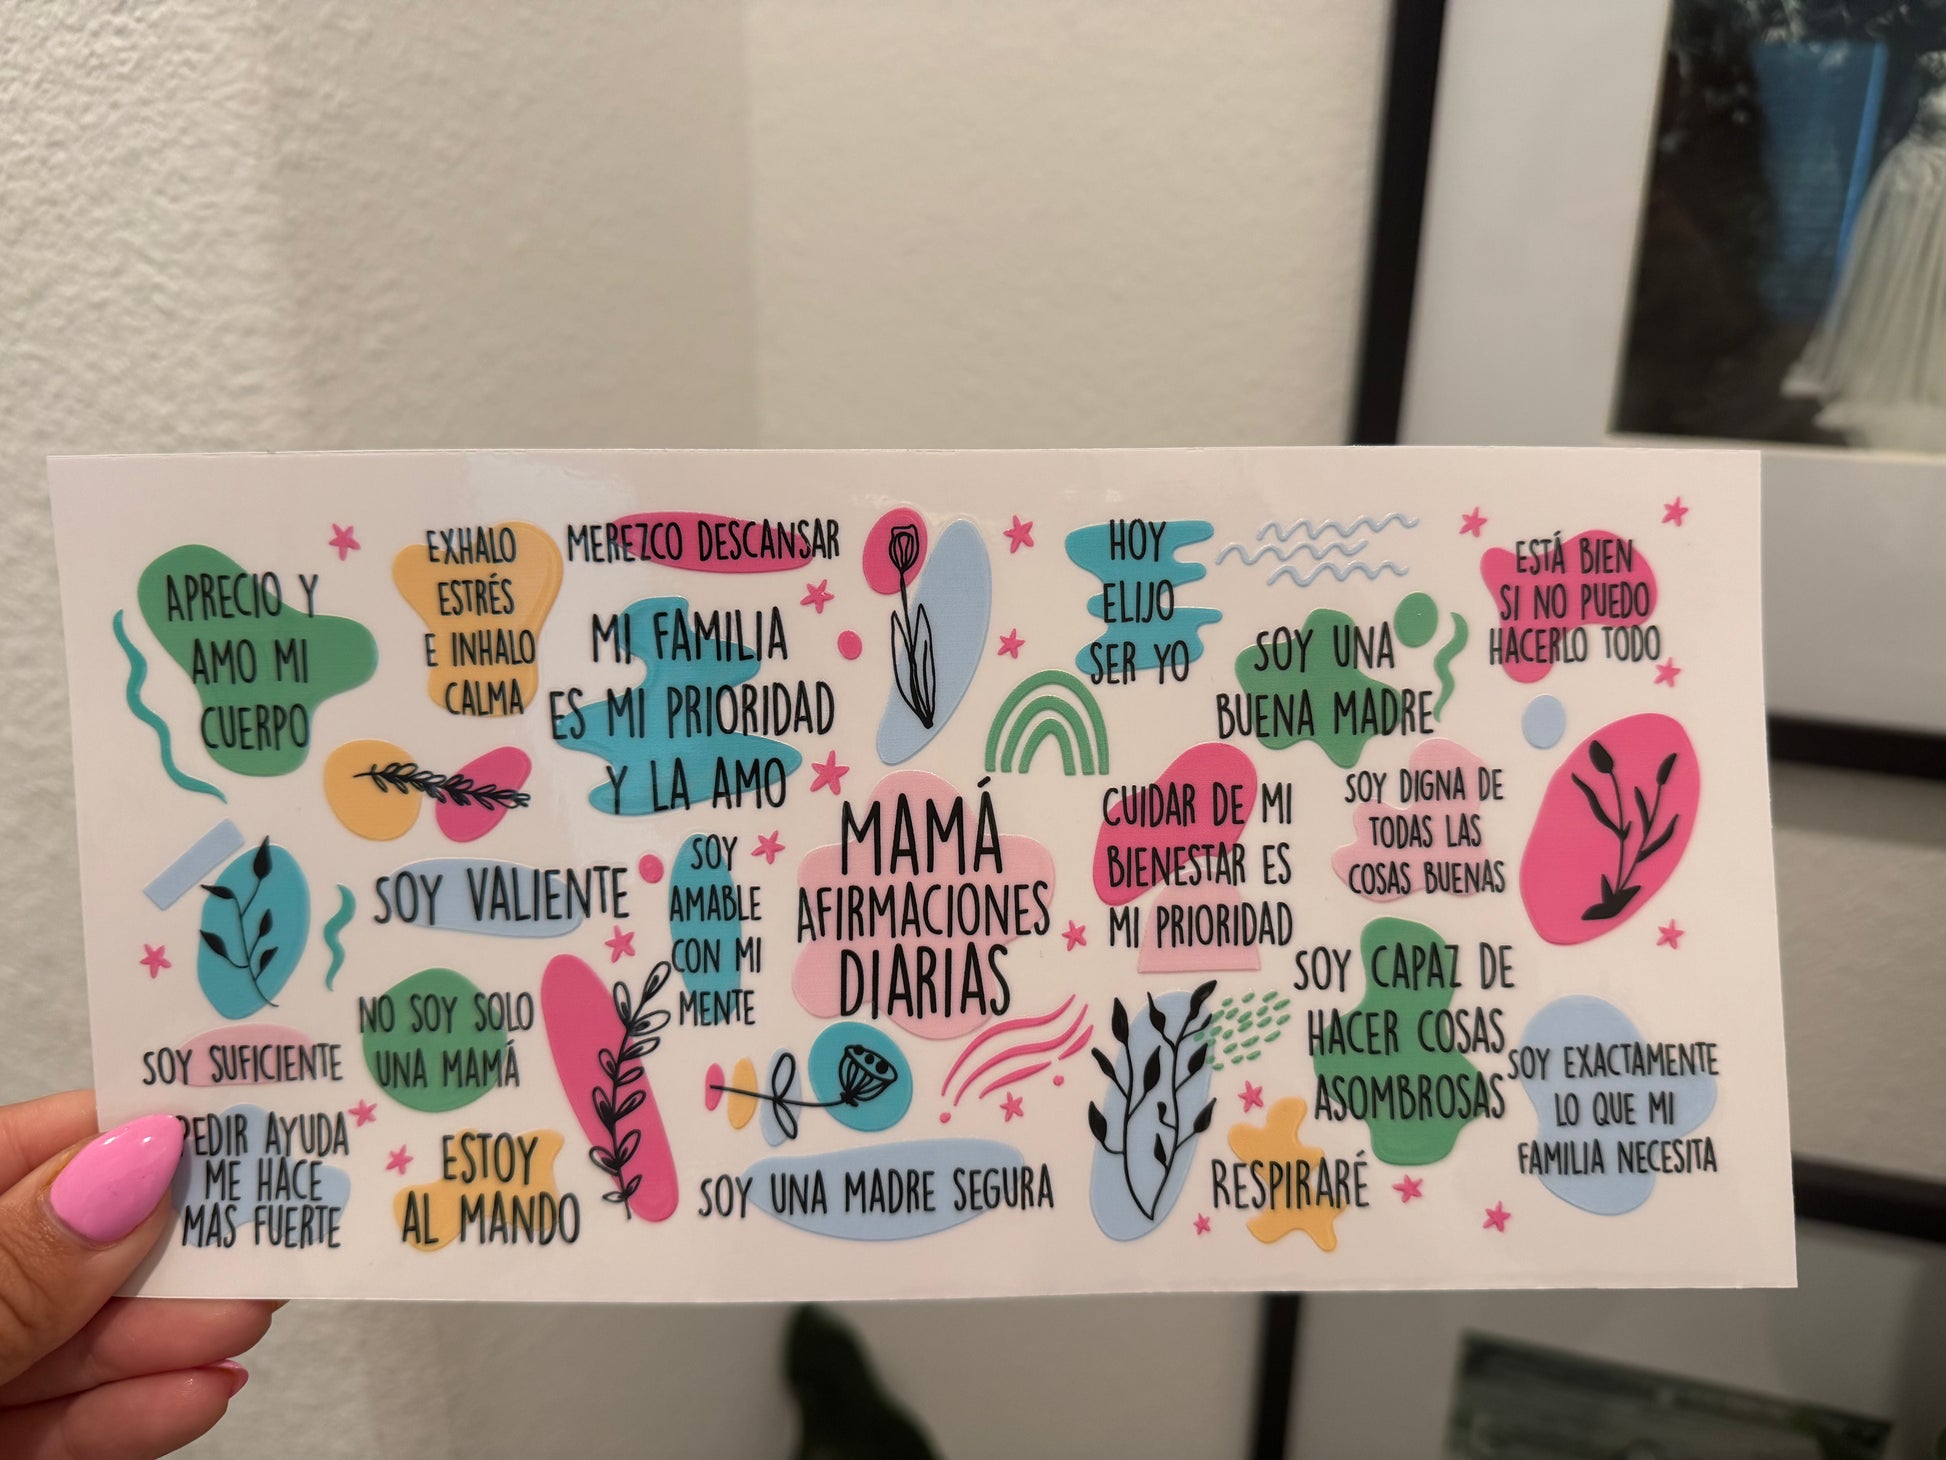 APRECIO Y
AMO MI
CUERPO
EXHALO
ESTRÉS
E INHALO
CALMA
MEREZCO DESCANSAR
MI FAMILIA
ES MI PRIORIDAD
Y LA AMO
HOY
ELIJO
SER YO
SOY UNA
BUENA MADRE
ESTÁ BIEN
SI NO PUEDO
HACERLO TODO
SOY VALIENTE
SOY
AMABLE
CON MI
MENTE
MAMÁ
AFIRMACIONES
DIARIAS
CUIDAR DE MI
BIENESTAR ES
MI PRIORIDAD
SOY DIGNA DE
TODAS LAS
COSAS BUENAS
SOY SUFICIENTE
NO SOY SOLO
UNA MAMÁ
SOY CAPAZ DE
HACER COSAS
ASOMBROSAS
SOY EXACTAMENTE
LO QUE MI
FAMILIA NECESITA
PEDIR AYUDA
ME HACE
MAS FUERTE
ESTOY
AL MANDO
SOY UNA MADRE SEGURA
RESPIRARÉ